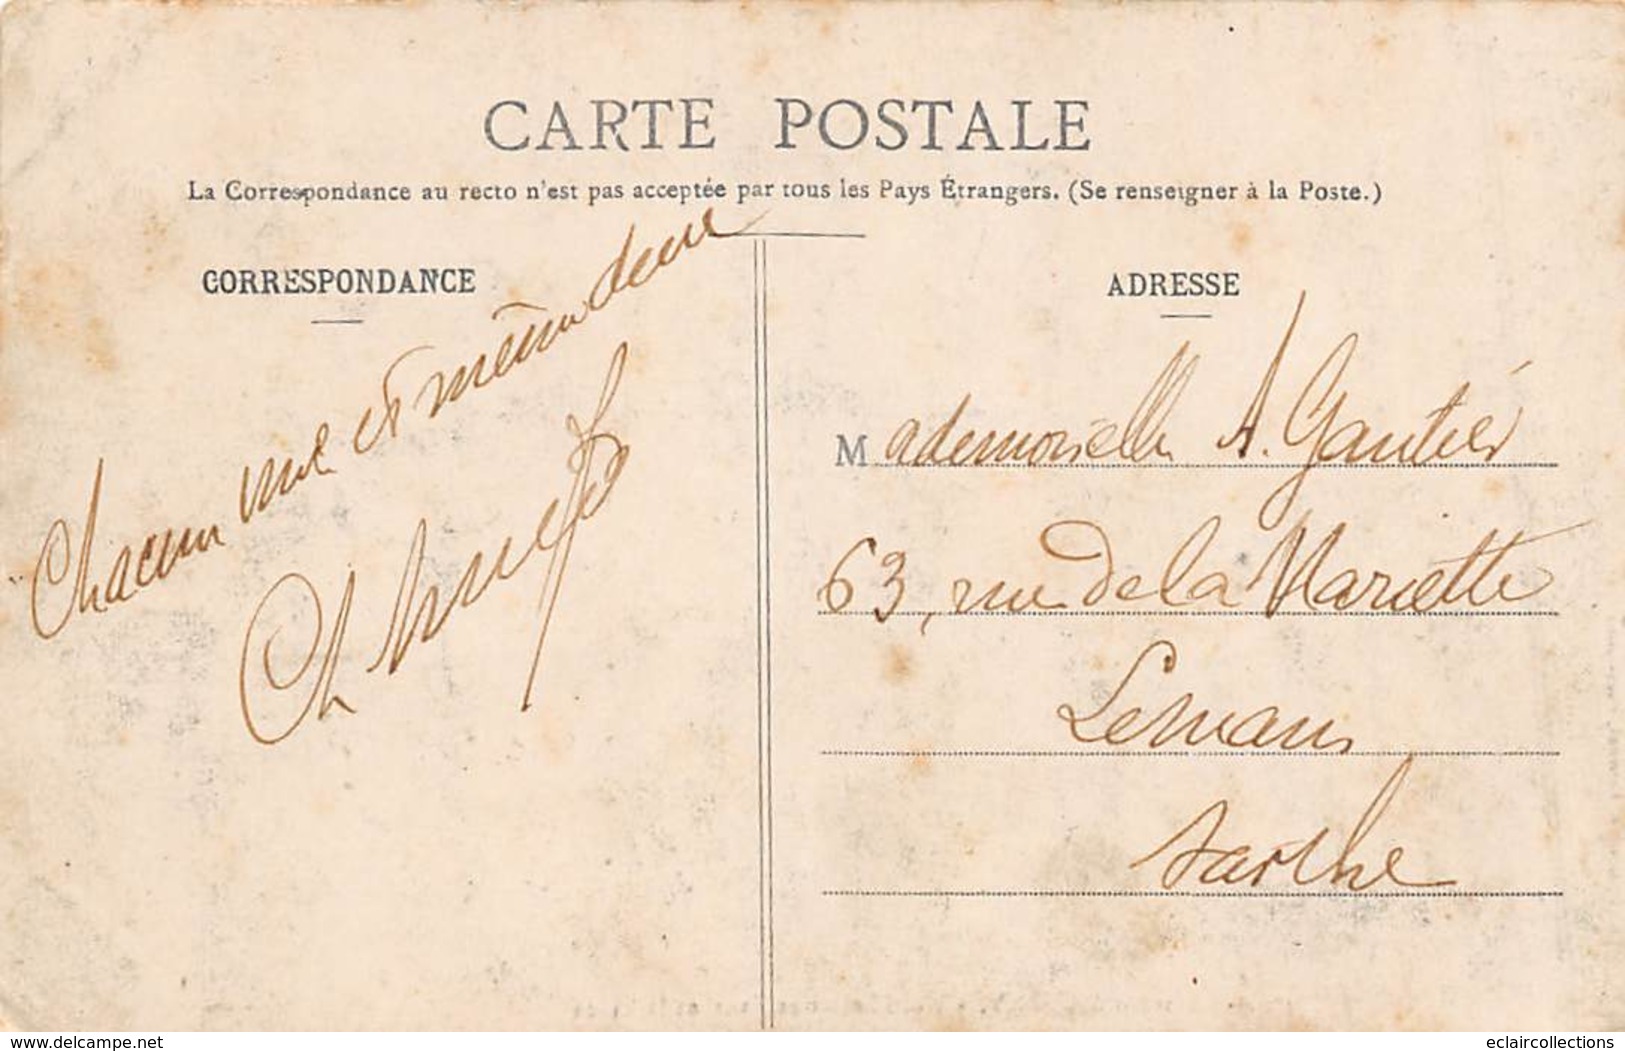 CARTE POSTALE
La Correspondance au recto n'est pas acceptée par tous les Pays Étrangers. (Se renseigner à la Poste.)
CORRESPONDANCE
ADRESSE
Chacun une et même deux
Mademoiselle A. Gautier
63, rue de la Mariette
Lemans
Sarthe
delcampe.net
eclaircollections